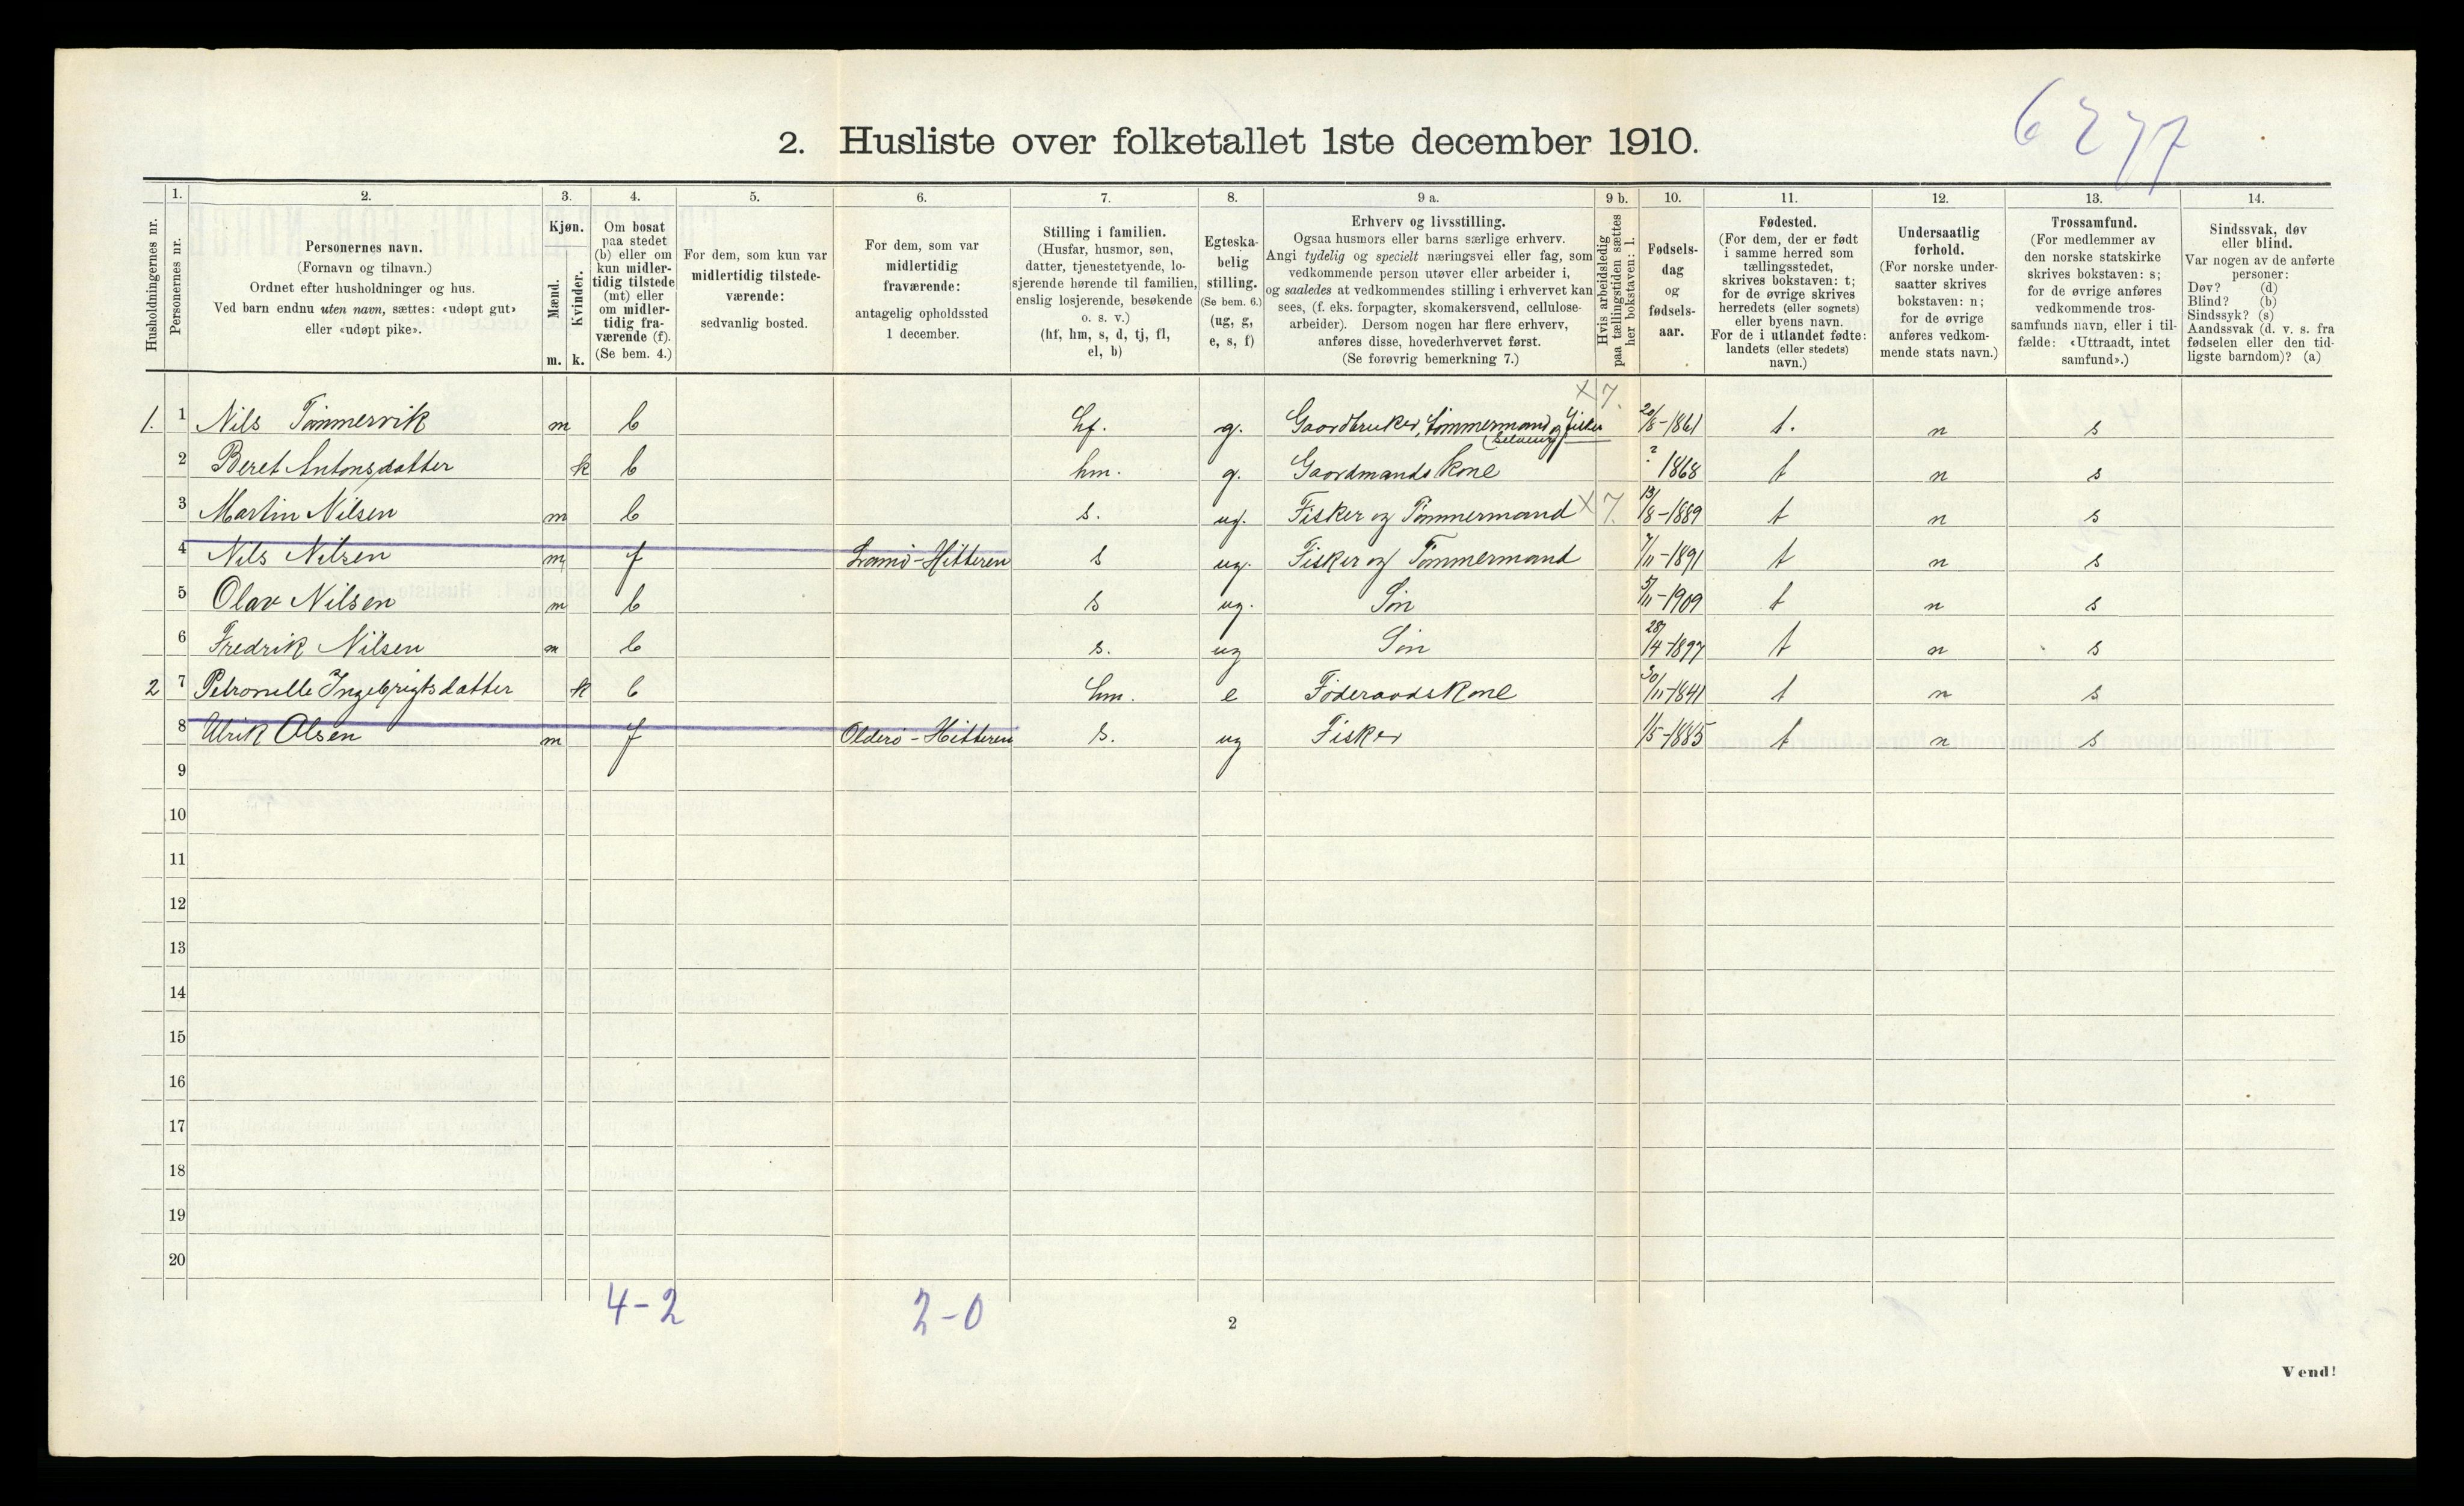 6277
2. Husliste over folketallet 1ste december 1910.
Husholdningernes nr.
1. Personernes nr.
2. Personernes navn. (Fornavn og tilnavn.) Ordnet efter husholdninger og hus. Ved barn endnu uten navn, sættes: «udøpt gut» eller «udøpt pike».
3. Kjøn. Mænd. m. Kvinder. k.
4. Om bosat paa stedet (b) eller om kun midlertidig tilstede (mt) eller om midlertidig fraværende (f). (Se bem. 4.)
5. For dem, som kun var midlertidig tilstedeværende: sedvanlig bosted.
6. For dem, som var midlertidig fraværende: antagelig opholdssted 1 december.
7. Stilling i familien. (Husfar, husmor, søn, datter, tjenestetyende, losjerende hørende til familien, enslig losjerende, besøkende o. s. v.) (hf, hm, s, d, tj, fl, el, b)
8. Egteskabelig stilling. (Se bem. 6.) (ug, g, e, s, f)
9 a. Erhverv og livsstilling. Ogsaa husmors eller barns særlige erhverv. Angi tydelig og specielt næringsvei eller fag, som vedkommende person utøver eller arbeider i, og saaledes at vedkommendes stilling i erhvervet kan sees, (f. eks. forpagter, skomakersvend, cellulosearbeider). Dersom nogen har flere erhverv, anføres disse, hovederhvervet først. (Se forøvrig bemerkning 7.)
9 b. Hvis arbeidsledig paa tællingstiden sættes her bokstaven: l.
10. Fødselsdag og fødselsaar.
11. Fødested. (For dem, der er født i samme herred som tællingsstedet, skrives bokstaven: t; for de øvrige skrives herredets (eller sognets) eller byens navn. For de i utlandet fødte: landets (eller stedets) navn.)
12. Undersaatlig forhold. (For norske undersaatter skrives bokstaven: n; for de øvrige anføres vedkommende stats navn.)
13. Trossamfund. (For medlemmer av den norske statskirke skrives bokstaven: s; for de øvrige anføres vedkommende trossamfunds navn, eller i tilfælde: «Uttraadt, intet samfund».)
14. Sindssvak, døv eller blind. Var nogen av de anførte personer: Døv? (d) Blind? (b) Sindssyk? (s) Aandssvak (d. v. s. fra fødselen eller den tidligste barndom)? (a)
1. 1 Nils Tømmervik m b hf. g. Gaardbruker, tømmermand og fisker X 7. 20/8-1861 t. n s
2 Beret Antonsdatter k b hm. g. Gaardmands kone ? 1868 t n s
3 Martin Nilsen m b s. ug. Fisker og Tømmermand X 7. 13/8-1889 t n s
4 Nils Nilsen m f -Hitteren s ug. Fisker og Tømmermand 7/11-1891 t n s
5 Olav Nilsen m b s ug. Søn 5/11-1909 t n s
6 Fredrik Nilsen m b s. ug Søn 28/4-1897 t n s
2 7 Petronelle Ingebrigtsdatter k b hm. e Føderaadskone 30/11-1841 t n s
8 Ulrik Olsen m f Olderø-Hitteren s. ug Fisker 1/5-1885 t n s
9
10
11
12
13
14
15
16
17
18
19
20
4-2 2-0
2
Vend!